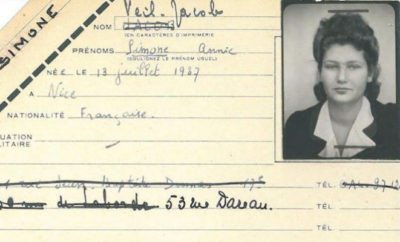 SIMONE
Veil-Jacob
NOM JACOB
(EN CARACTÈRES D'IMPRIMERIE)
PRÉNOMS Simone Annie
(SOULIGNEZ LE PRÉNOM USUEL)
NÉE LE 13 juillet 1927
A Nice
NATIONALITÉ Française.
UATION
LITAIRE
rue Jean-Baptiste Dumas 17e TÉL.
rue de Laborde 53 rue Dareau. TÉL.
TÉL.